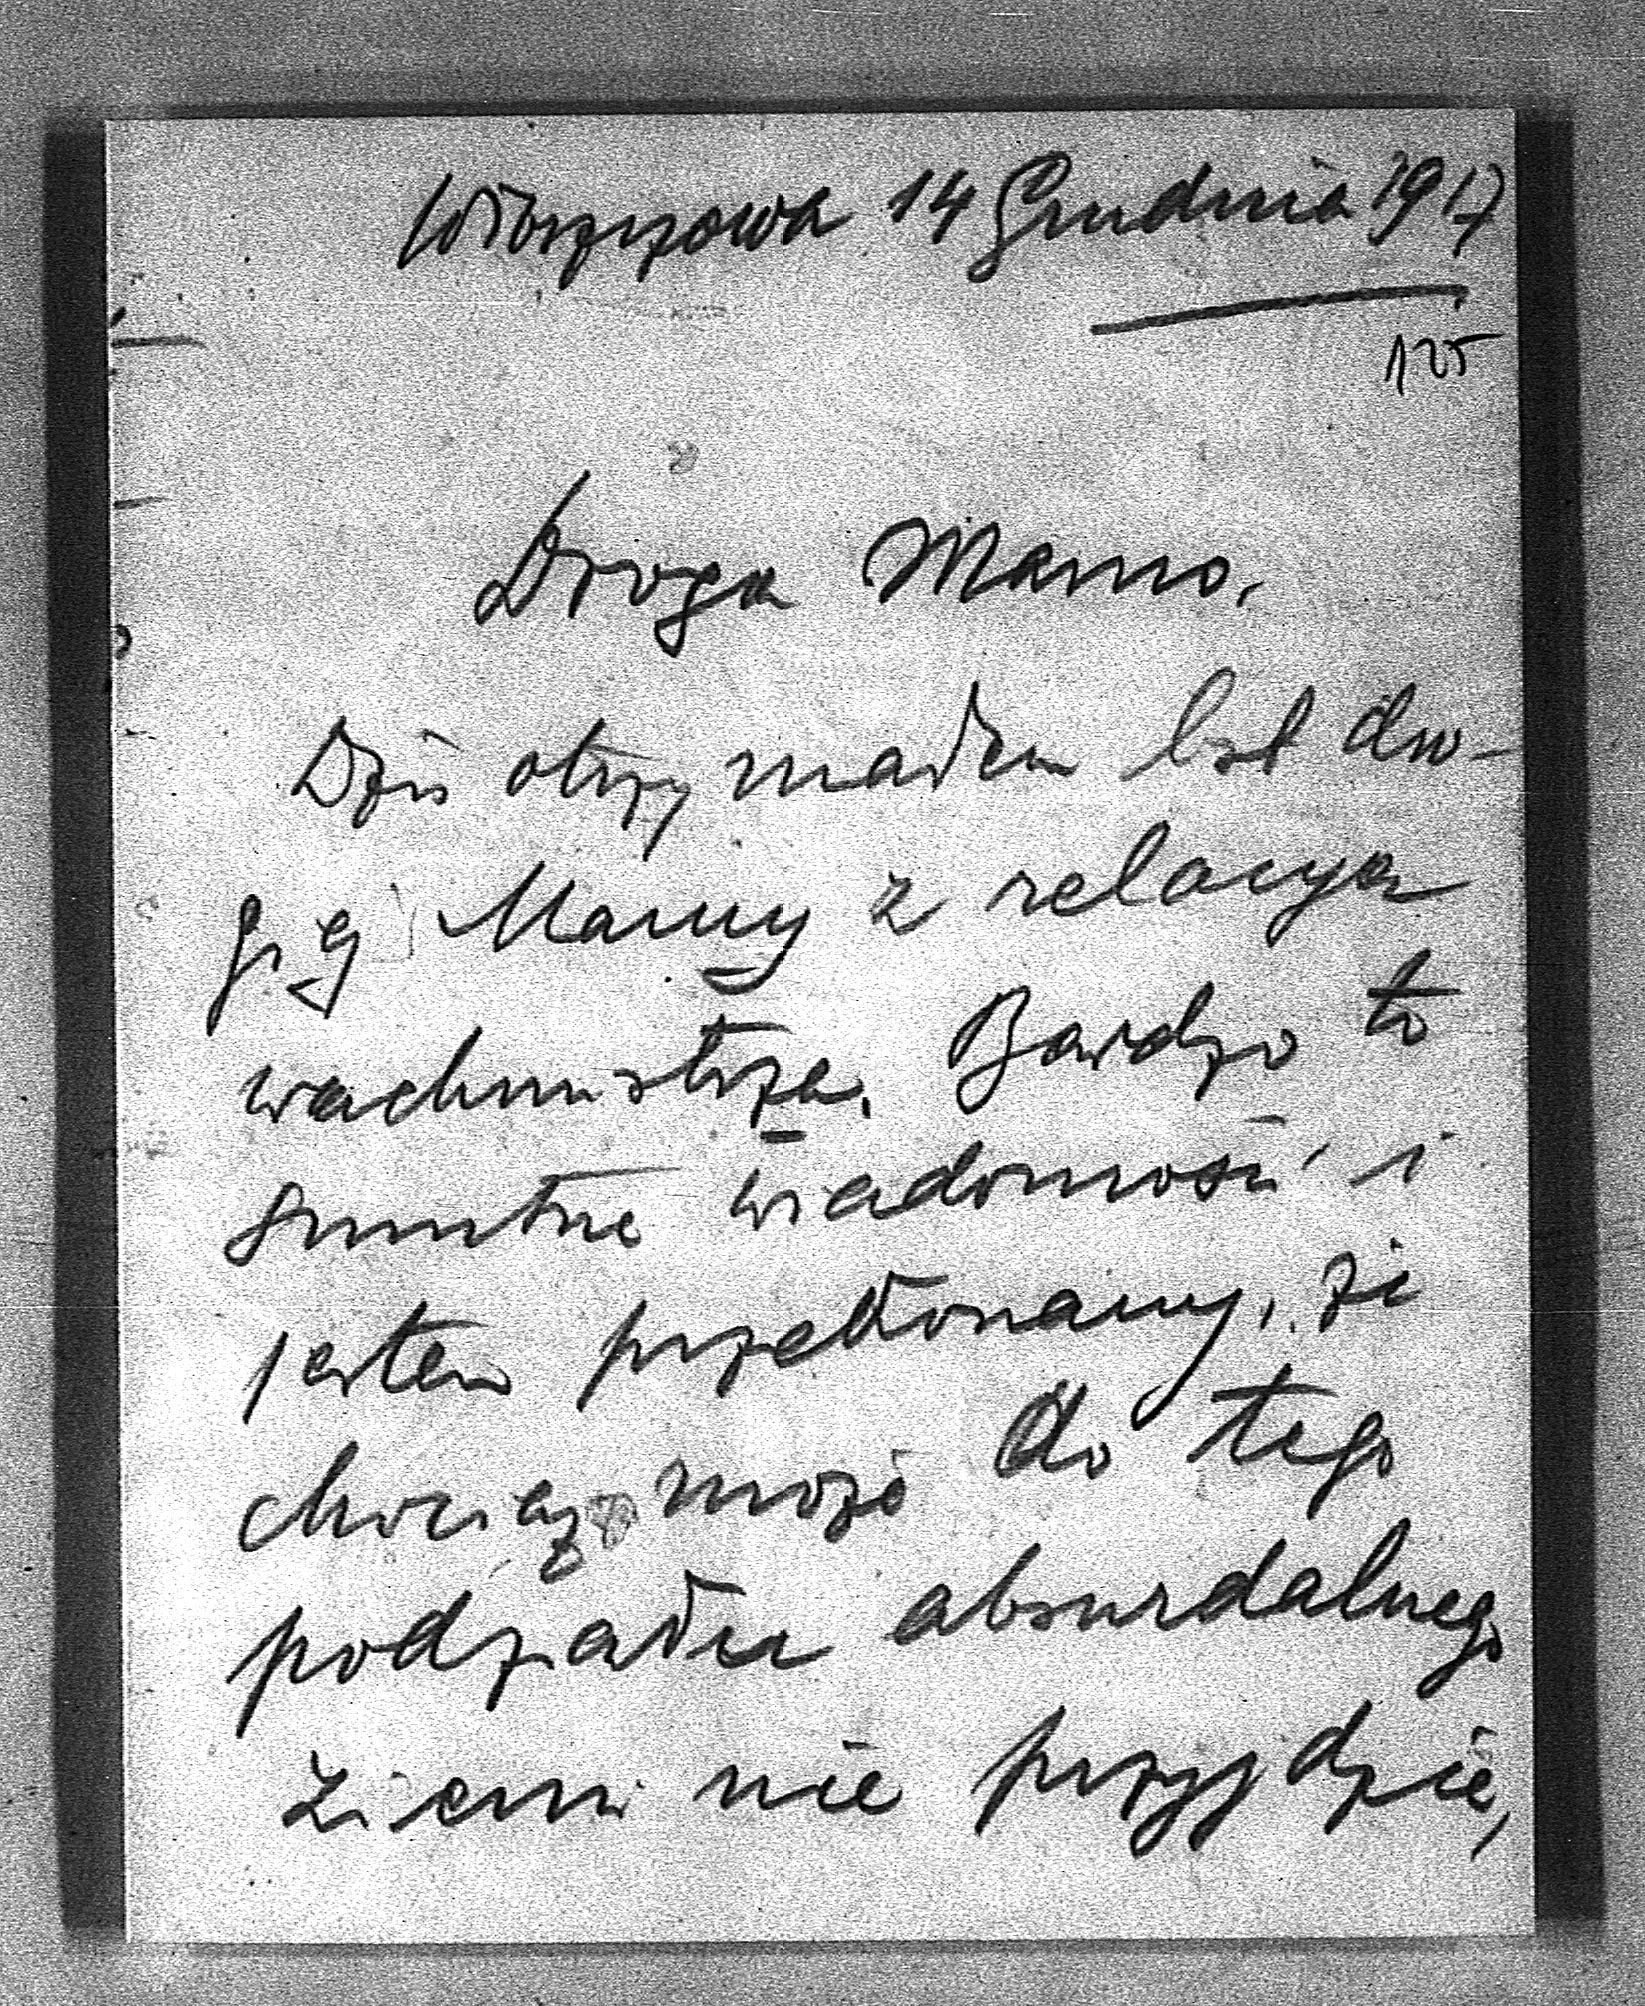 Wloszczowa 14 Grudnia 1917
125
Droga Mamo.
Dziś otrzymałem list dro-
giej Mamy z relacyą
wachmistrza. Bardzo to
smutne wiadomość i
jestem przekonany, że
chociaż może do tego
podziału absurdalnego
ziemi nie przyjdzie,